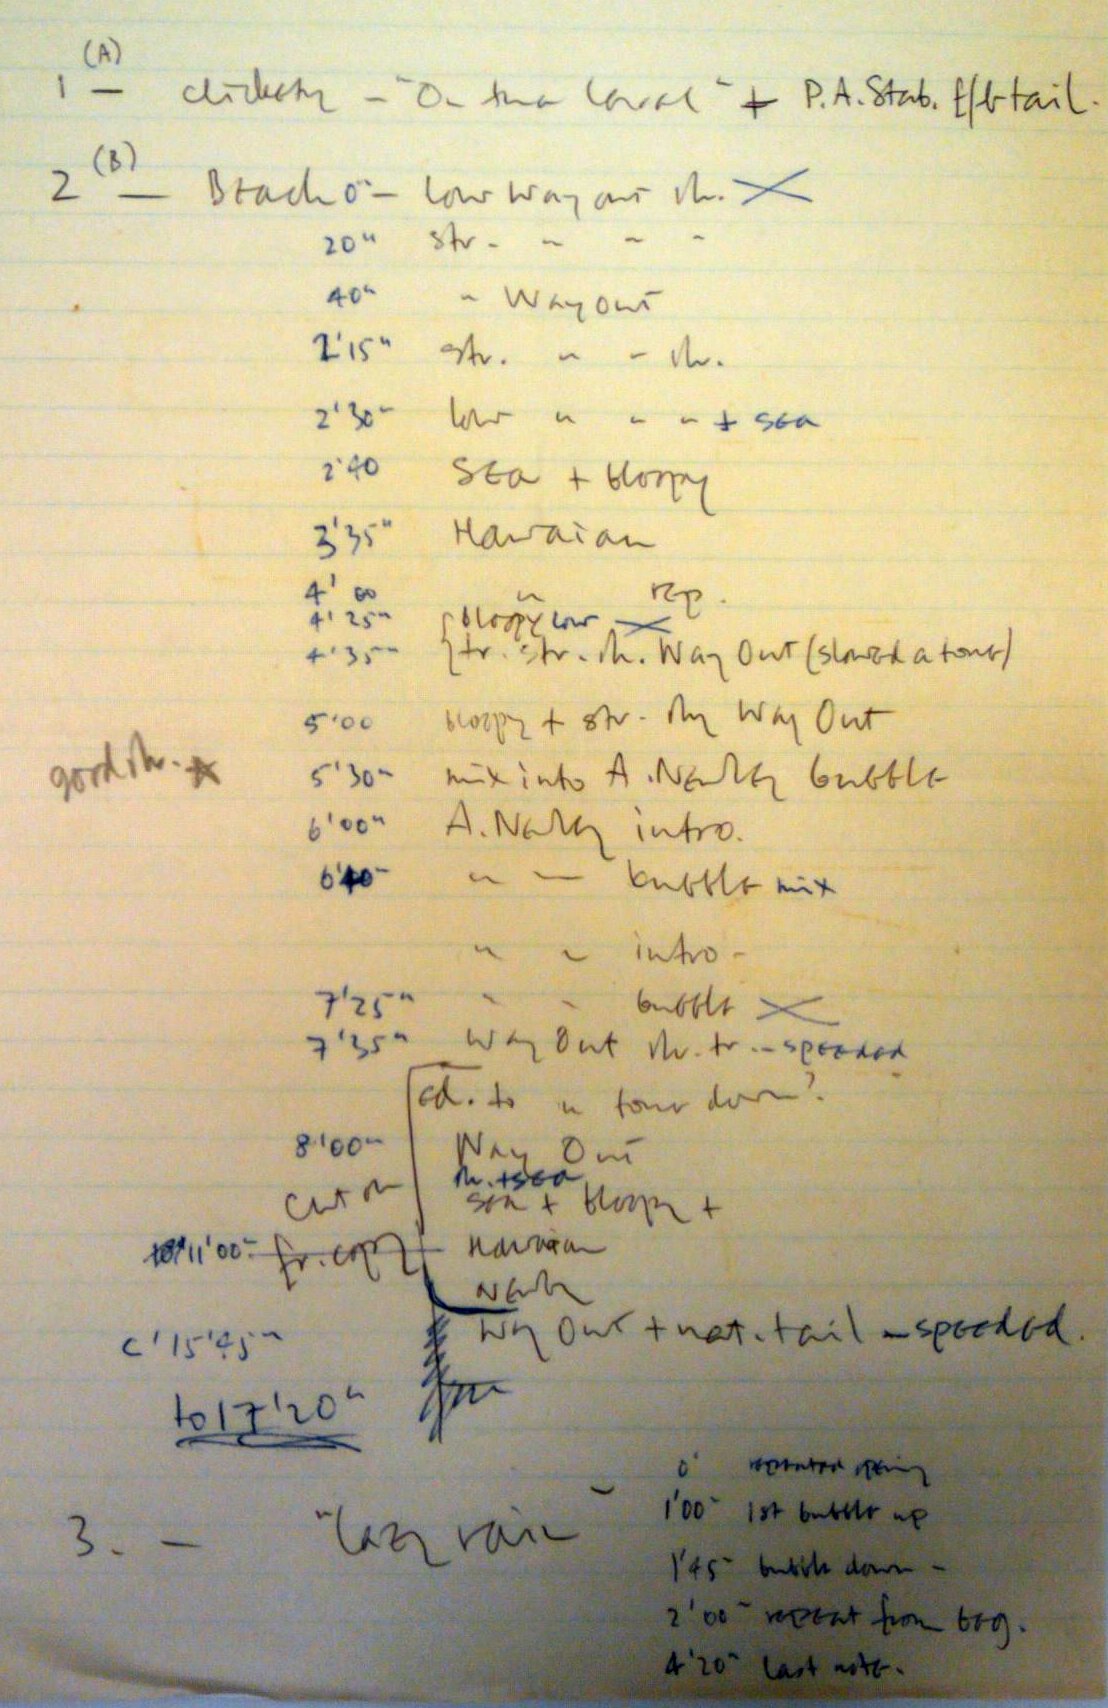 (A)
1 — clickety - "On the level" + P.A. Stab. f/b tail.
(B)
2 — Beach 0" - low Way out rh.
20" str. " " "
40" " Way Out
2'15" str. " " rh.
2'30" low " " " + sea
2'40 Sea + bloopy
3'35" Hawaian
4'00 " rep.
4'25" bloopy low
4'35" tr. str. rh. Way Out (slowed a tone)
5'00 bloopy + str. rhy Way Out
good rh. 5'30" mix into A. Newley bubble
6'00" A. Newley intro.
6'40" " " bubble mix
" " intro -
7'25" " " bubble
7'35" Way Out rh. tr. - speeded
ed. to " tone down?
8'00" Way Out
rh. + sea
cut on sea + bloopy +
11'00" fr. copy Hawaian
Newley
c'15'45" Way Out + nat. tail - speeded.
to 17'20"
0" repeated opening
1'00" 1st bubble up
3. — "lazy rain"
1'45" bubble down -
2'00" repeat from beg.
4'20" last note.